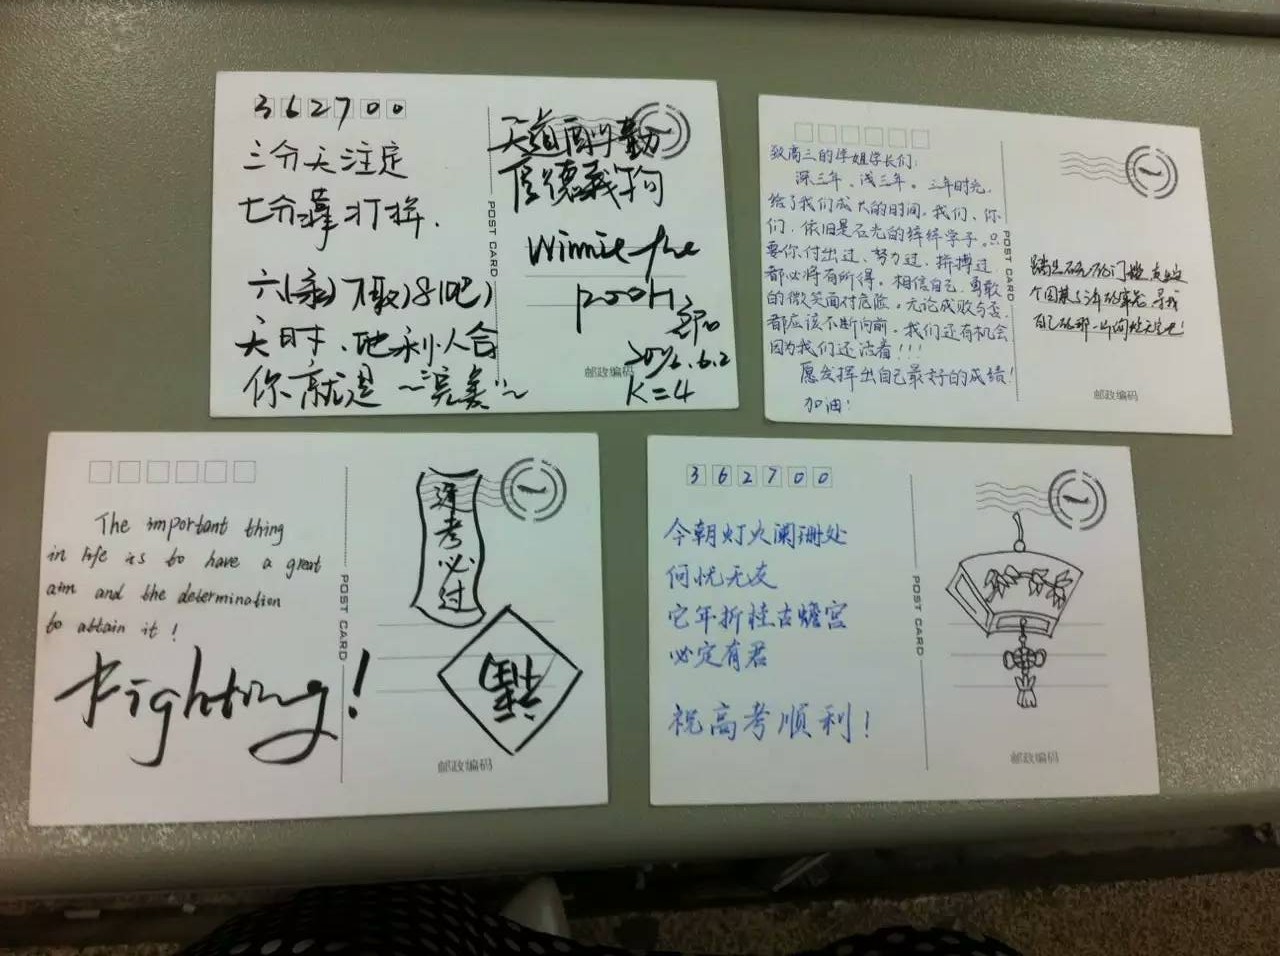 362700
三分天注定
七分靠打拼.
六(录)7(取)8(吧)
天时、地利人合
你就是～“完美”～
POST CARD
天道酬勤
厚德载物
Winnie the
pooh.
2016.6.2
K=4
邮政编码
致高三的学姐学长们:
深三年、浅三年。三年时光,
给了我们成长的时间。我们、你
们,依旧是石光的莘莘学子。只
要你付出过、努力过、拼搏过
都必将有所得。相信自己,勇敢
的微笑面对危险。无论成败与否,
都应该不断向前。我们还有机会
因为我们还活着!!!
愿发挥出自己最好的成绩!
加油!
POST CARD
自己的那一片
邮政编码
The important thing
in life is to have a great
aim and the determination
to attain it!
Fighting!
POST CARD
逢考必过
福
邮政编码
362700
今朝灯火阑珊处
何忧无友
它年折桂古蟾宫
必定有君
祝高考顺利!
POST CARD
邮政编码